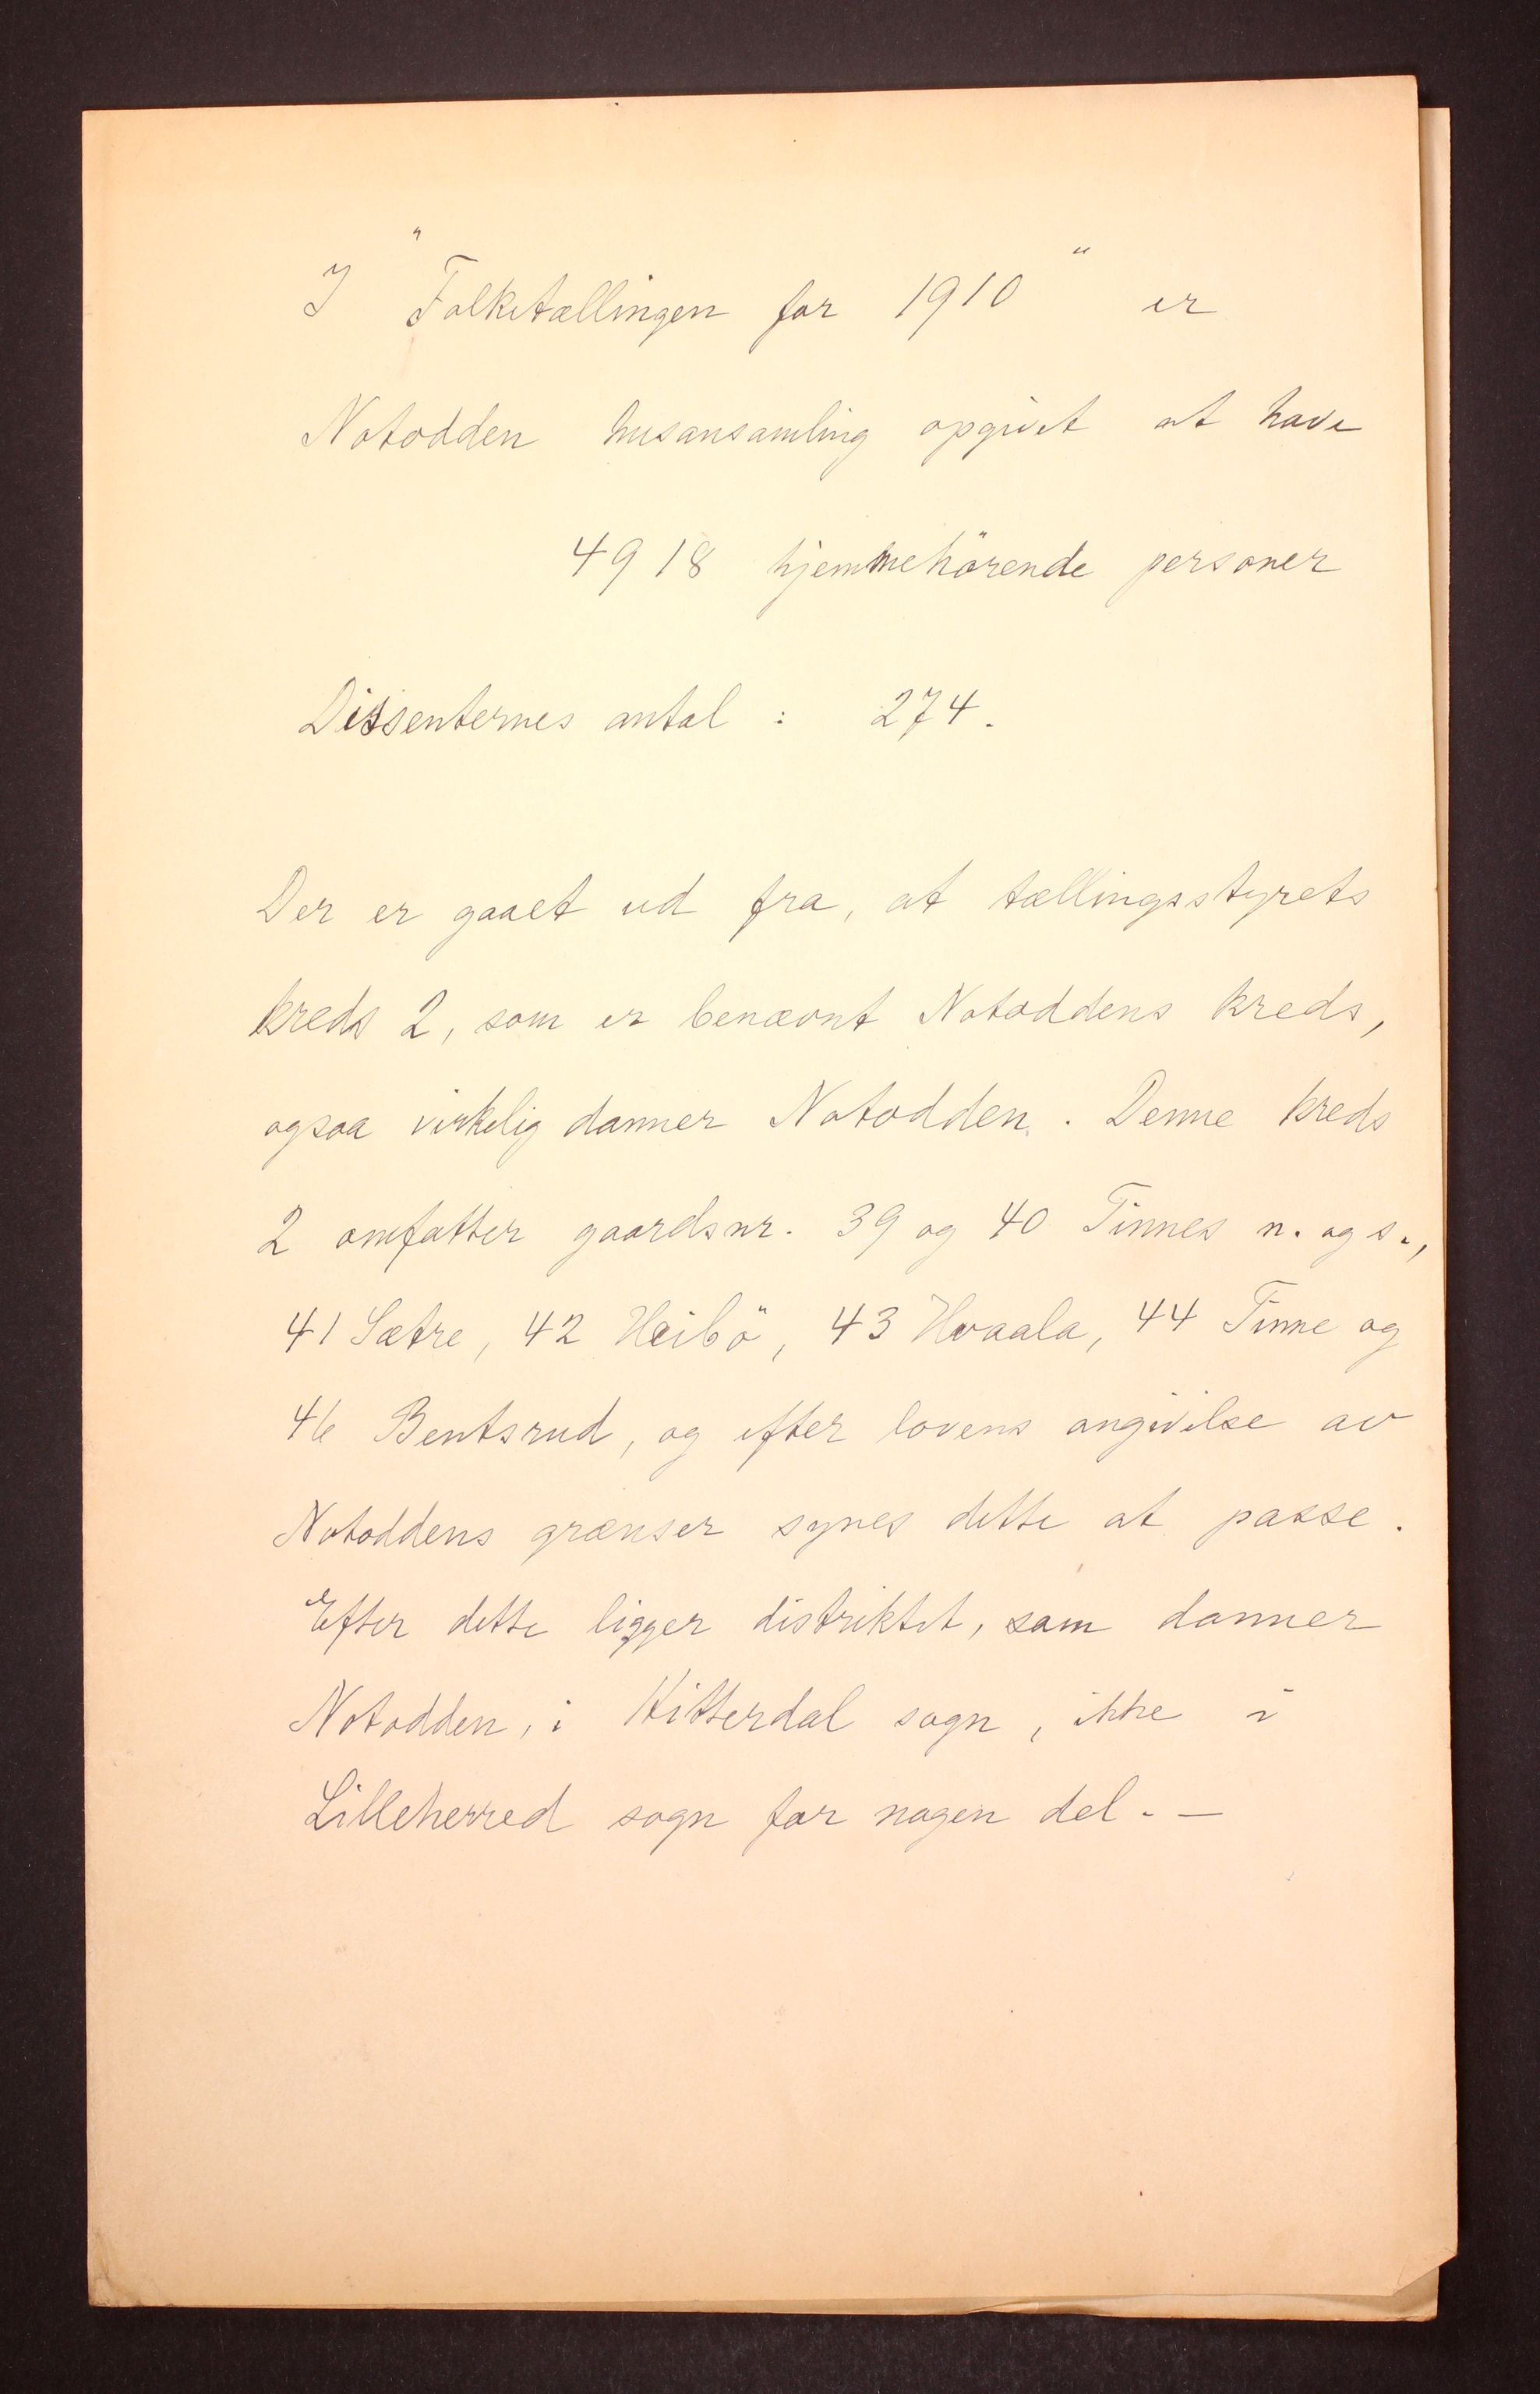 I "Folketællingen for 1910" er
Notodden husansamling opgivet at have
4918 hjemmehörende personer
Dissenternes antal : 274.
Der er gaaet ud fra, at tællingsstyrets
kreds 2, som er benævnt Notoddens kreds,
ogsaa virkelig danner Notodden. Denne kreds
2 omfatter gaardsnr. 39 og 40 Tinnes n. og s.,
41 Sætre, 42 Heibö, 43 Hvaala, 44 Tinne og
46 Bentsrud, og efter lovens angivelse av
Notoddens grænser synes dette at passe.
Efter dette ligger distriktet, som danner
Notodden, i Hitterdal sogn, ikke i
Lilleherred sogn for nogen del. —